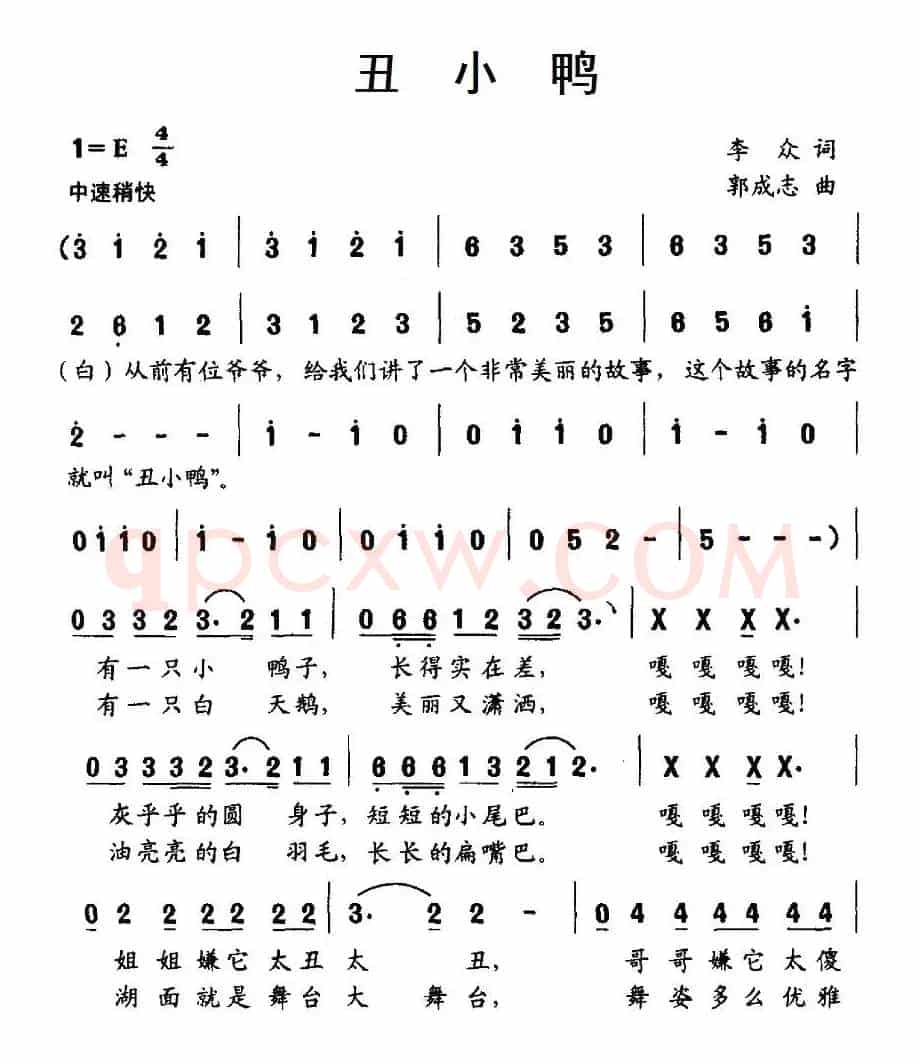 丑 小 鸭
1=E 4/4
李 众 词
中速稍快
郭成志 曲
(3̇ 1̇ 2̇ 1̇ | 3̇ 1̇ 2̇ 1̇ | 6 3 5 3 | 6 3 5 3 |
2 6̣ 1 2 | 3 1 2 3 | 5 2 3 5 | 6 5 6 1̇ |
（白）从前有位爷爷，给我们讲了一个非常美丽的故事，这个故事的名字
2̇ - - - | 1̇ - 1̇ 0 | 0 1̇ 1̇ 0 | 1̇ - 1̇ 0 |
就叫“丑小鸭”。
0 1̇ 1̇ 0 | 1̇ - 1̇ 0 | 0 1̇ 1̇ 0 | 0 5 2 - | 5 - - - )
qpcxw.COM
0 3 3 2 3· 2 1 1 | 0 6̣ 6̣ 1 2 3 2 3· | X X X X·
有一只小 鸭子， 长得实在差， 嘎嘎嘎嘎！
有一只白 天鹅， 美丽又潇洒， 嘎嘎嘎嘎！
0 3 3 3 2 3· 2 1 1 | 6̣ 6̣ 6̣ 1 3 2 1 2· | X X X X·
灰乎乎的圆 身子，短短的小尾巴。 嘎嘎嘎嘎！
油亮亮的白 羽毛，长长的扁嘴巴。 嘎嘎嘎嘎！
0 2 2 2 2 2 2 | 3· 2 2 - | 0 4 4 4 4 4 4 |
姐姐嫌它太丑太 丑， 哥哥嫌它太傻
湖面就是舞台大 舞台， 舞姿多么优雅